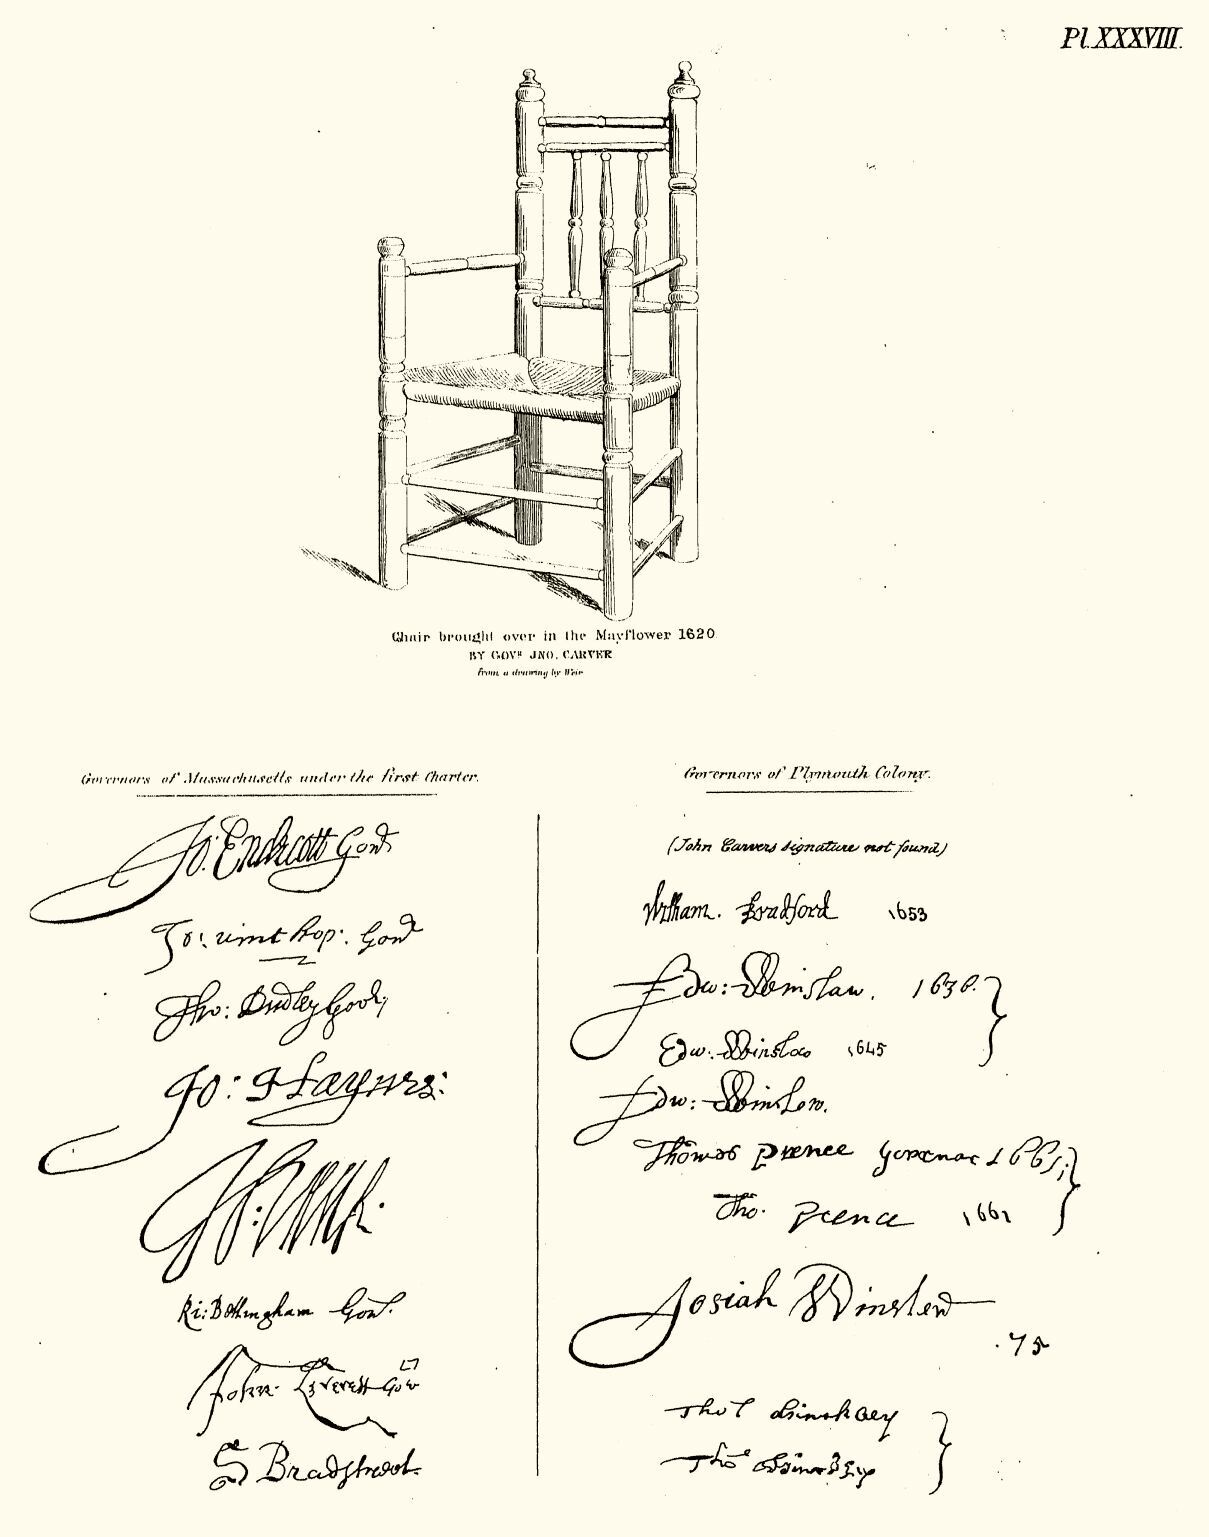 Pl. XXXVIII.
Chair brought over in the Mayflower 1620
BY GOVR JNO. CARVER
from a drawing by Weir
Governors of Massachusetts under the first Charter.
Jo: Endecott Govr
Jo: winthrop: Govr
Tho: Dudley Govr
Jo: Haynes:
Ri: Bellingham Govr.
John Leverett Govr
S Bradstreet.
Governors of Plymouth Colony.
(John Carvers signature not found)
William. Bradford 1653
Edw: Winslow. 1636.
Edw: Winslow 1645
Edw: Winslow.
Thomas Prence Governor 1661
Tho. Prence 1661
Josiah Winslow
75
Tho Hinckley
Tho Hinckley